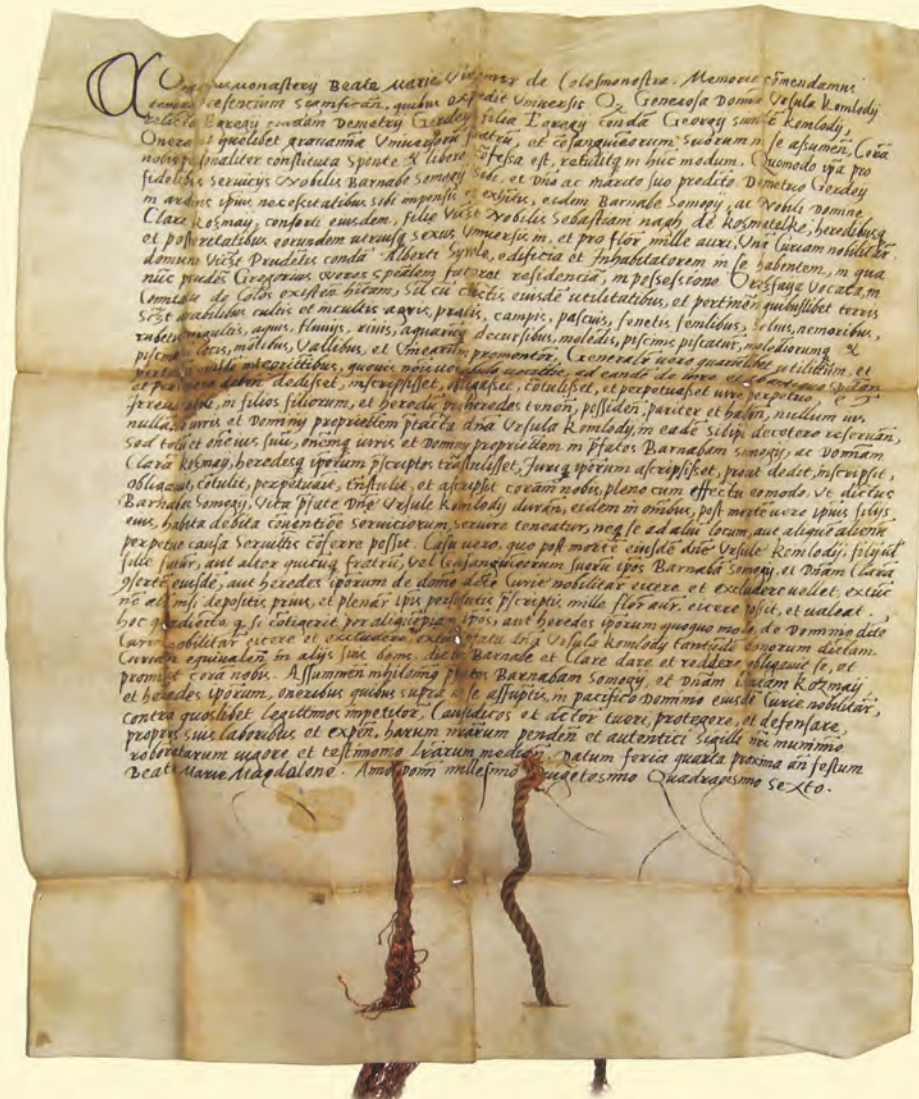 Conventus Monastery Beate Marie Virginis de Colosmonostra. Memorie cōmendamus
significan̄, quibus expedit Vniuersis Q₂ Generosa Domina Vrsula Komlody
relicta Egregy condam Demetry Gerdey filia Egregy condā Georgy similr̄ Komlody,
Onera et quelibet grauamīna Vniuersorū fratrū, et cōsanguineorum suorum in se assumen̄, Corā
nobis personaliter constituta sponte & libere cōfessa est, retulitq̨ in hūc modum. Quomodo ip̄a pro
fidelibus seruicys Nobilis Barnabe Somogy sibi, et Dn̄o ac marito suo predicto Demetrio Gerdey
in arduis ipius necessitatibus sibi impensis et exhitis, eidem Barnabe Somogy, ac Nobili Domine
Clare Kozmay, consorti eiusdem, filie Vict Nobilis Sebastiani nagh de kozmatelke, heredibusq̨
et posteritatibus eorundem utriusq̨ sexus Vniuersis m̄, et pro flor̄ mille auri, Vnā Curiam nobilitar̄
domum Vict Prudētis condā Alberti edificia et Inhabitatorem in se habentem, in qua
nūc prudēs Gregorius weres sp̄ealem faceret residenciā, in possessione Orezfaya vocata, in
Comitatu de Colos existen̄ hītam, Sīl cū cūctis eiusdē utilitatibus, et pertinen̄ quibuslibet terris
Sc̄zt arabilibus cultis et incultis agris, pratis, campis, pascuis, fenetis fenilibus, Siluis, nemoribus,
rubetis virgultis, aquis, fluuys, riuis, aquarūq̨ decursibus, molēdis, piscinis piscatur̄, molēdinorumq̨ &
piscinarū locis, mōtibus, Vallibus, et Vinearum promontor̄, Generalr̄ vero quarūlibet utilitatum, et
pertinen̄ integritibus, quouis noīe vocabulo vocatis, ad eandē de iure et abantiquo spectan̄
et pertinere deben̄ dedisset, inscripsisset, obligasset, cōtulisset, et perpetuasset iure perpetuo, et
Irreuocabilr̄, in filios filiorum, et heredū per heredes tenen̄, possiden̄, pariter et haben̄, nullum ius
nullāq̨ iuris et Dominy proprietem p̄tacta dn̄a Vrsula Komlody, in eadē sibipi decetero reseruan̄,
Sed totū et om̄e ius suū, om̄emq̨ iuris et Dominy proprietem in p̄fatos Barnabam Somogy, ac Domnam
Clarā Kozmay, heredesq̨ ip̄orum p̄scriptos trāstulisset, Iuriq̨ ip̄orum ascripsisset, prout dedit, inscripsit,
obligauit, cōtulit, perpetuauit, trāstulit, et ascripsit coram nobis, pleno cum effectu eomodo, Vt dictus
Barnabas Somogy, Vita p̄fate Dn̄e Vrsule Komlody durān, eidem in om̄ibus, post mortē vero ipius filys
eius, habita debita cōuentiōe seruiciorum, seruire teneatur, neq̨ se ad aliū locum, aut aliquē alienū
perpetue causa seruitis cōferre possit. Casu vero, quo post mortē eiusdē dn̄e Vrsule Komlody, filij uel
filie sue, aut alter quicūq̨ fratrū, Vel Cōsanguineorum suorū ip̄os Barnabā Somogy, et Dn̄am Clarā
cōsortē eiusdē, aut heredes ip̄orum de domo dc̄te Curie nobilitar̄ eicere et excludere vellet, extūc
nō alr̄ nisi depositis prius, et plenar̄ ip̄is persolutis p̄scriptis mille flor̄ aur̄, eicere possit, et ualeat.
hoc quoq̨ adiecto, q̨ si cōtigerit per aliquē ip̄os, aut heredes ip̄orum quoquo modo, de Dominio dc̄te
Curie nobilitar̄ eicere et excludere, extūc p̄fata dn̄a Vrsula Komlody tantūdē bonorum dictam
Curiam equiualen̄ in alijs suis bonis, dictis Barnabe et Clare dare et reddere obligauit se, et
promisit corā nobis. Assummen̄ nihilominq̨ p̄fatos Barnabam Somogy, et Dn̄am Claram Kozmay
et heredes ip̄orum, oneribus quibus supra in se assūptis, in pacifico Dominio eiusdē Curie nobilitar̄,
contra quoslibet legittimos impetitor̄, Causidicos et actor̄ tueri, protegere, et defensare,
proprys suis laboribus et expen̄, harum nr̄arum penden̄ et autentici sigilli nr̄i munimine
roboratarum vigore et testimonio lr̄arum median̄. Datum feria quarta proxima an̄ festum
Beate Marie Magdalene. Anno Domini millesimo Quingetesimo Quadragesimo sexto.